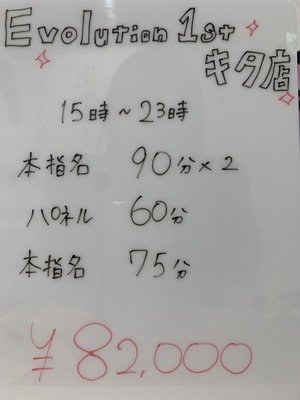 Evolution 1st
キタ店
15時～23時
本指名 90分×2
パネル 60分
本指名 75分
¥82,000